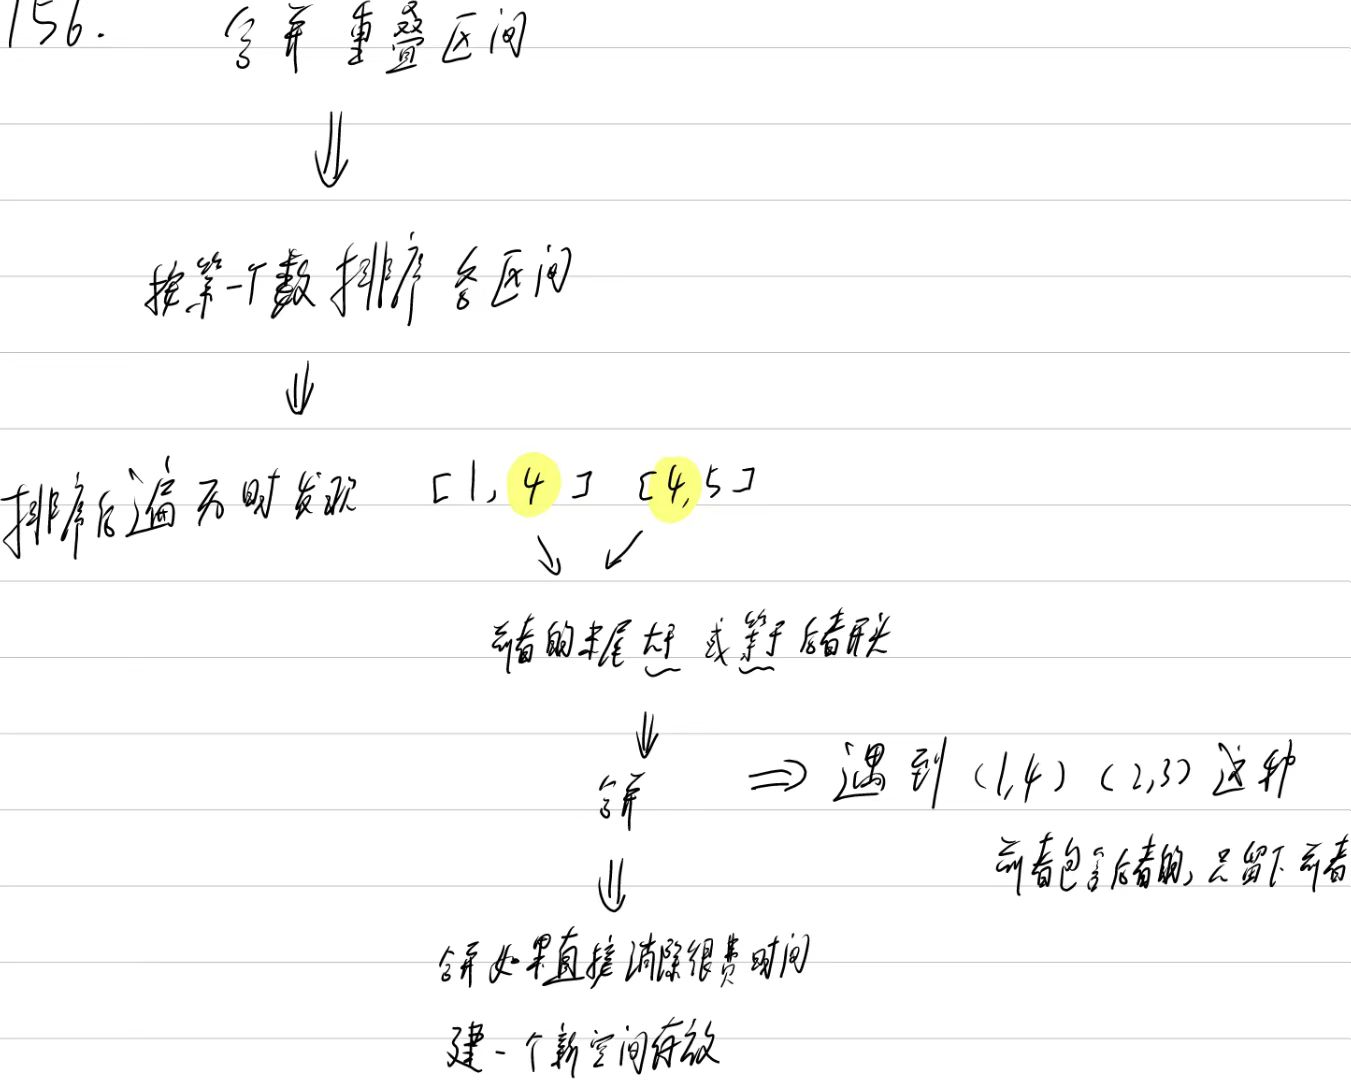 156. 合并重叠区间
按第一个数排序各区间
排序后遍历时发现 [1, 4] [4,5]
前者的末尾大于或等于后者开头
合并 ⇒ 遇到 (1,4) (2,3) 这种
前者包含后者的,只留下前者
合并如果直接消除很费时间
建一个新空间存放